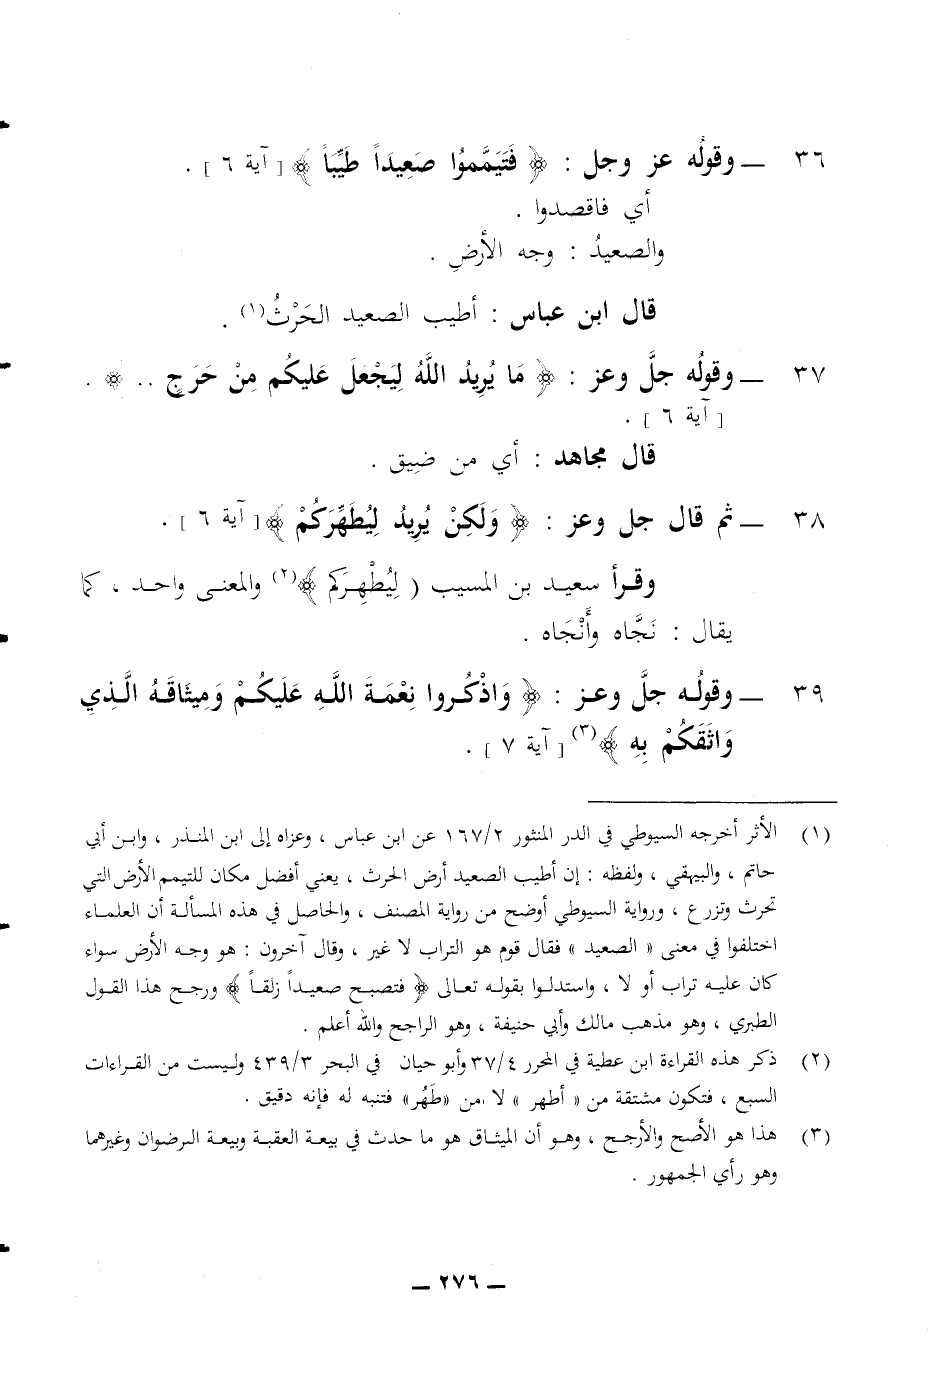 ٣٦ ــ وقولُه عز وجل : ﴿ فَتَيَمَّمُوْا صَعِيدَاً طَيِّبَاً ﴾ [ آية ٦ ] .
أي فاقصدوا .
والصعيدُ : وجه الأرضِ .
قال ابن عباس : أطيب الصعيد الحَرْثُ(١) .
٣٧ ــ وقولُه جلَّ وعز : ﴿ مَا يُرِيدُ اللَّهُ لِيَجْعَلَ عَليكُم مِنْ حَرَجٍ .. ﴾ .
[ آية ٦ ] .
قال مجاهد : أي من ضيِق .
٣٨ ــ ثم قال جل وعز : ﴿ وَلَكِنْ يُرِيدُ لِيُطَهِّرَكُمْ ﴾ [ آية ٦ ] .
وقـرأ سعيـد بن المسيب ( لِيُطْهِـرَكم ﴾(٢) والمعنـى واحـد ، كما
يقال : نَجَّاه وأَنْجَاه .
٣٩ ــ وقولُـه جلَّ وعـز : ﴿ وَاذْكُـروا نِعْمَـةَ اللَّـهِ عَلَيكُـمْ وَمِيثَاقَـهُ الَّـذِي
وَاثَقَكُمْ بِهِ ﴾(٣) [ آية ٧ ] .
(١) الأثر أخرجه السيوطي في الدر المنثور ١٦٧/٢ عن ابن عباس ، وعزاه إلى ابن المنـذر ، وابـن أبي
حاتم ، والبيهقي ، ولفظه : إن أطيب الصعيد أرض الحرث ، يعني أفضل مكان للتيمم الأرض التي
تحرث وتزرع ، ورواية السيوطي أوضح من رواية المصنف ، والحاصل في هذه المسألـة أن العلمـاء
اختلفوا في معنى « الصعيد » فقال قوم هو التراب لا غير ، وقال آخرون : هو وجـه الأرض سواء
كان عليـه تراب أو لا ، واستدلـوا بقولـه تعـالى ﴿ فتصبـح صعيـداً زلقـاً ﴾ ورجـح هذا القـول
الطبري ، وهو مذهب مالك وأبي حنيفة ، وهو الراجح والله أعلم .
(٢) ذكر هذه القراءة ابن عطية في المحرر ٣٧/٤ وأبو حيان في البحر ٤٣٩/٣ وليـست من القـراءات
السبع ، فتكون مشتقة من « أطهر » لا من «طَهُر» فتنبه له فإنه دقيق .
(٣) هذا هو الأصح والأرجـح ، وهـو أن الميثـاق هو ما حدث في بيعـة العقبـة وبيعـة الـرضوان وغيرهما
وهو رأي الجمهور .
ــ ٢٧٦ ــ